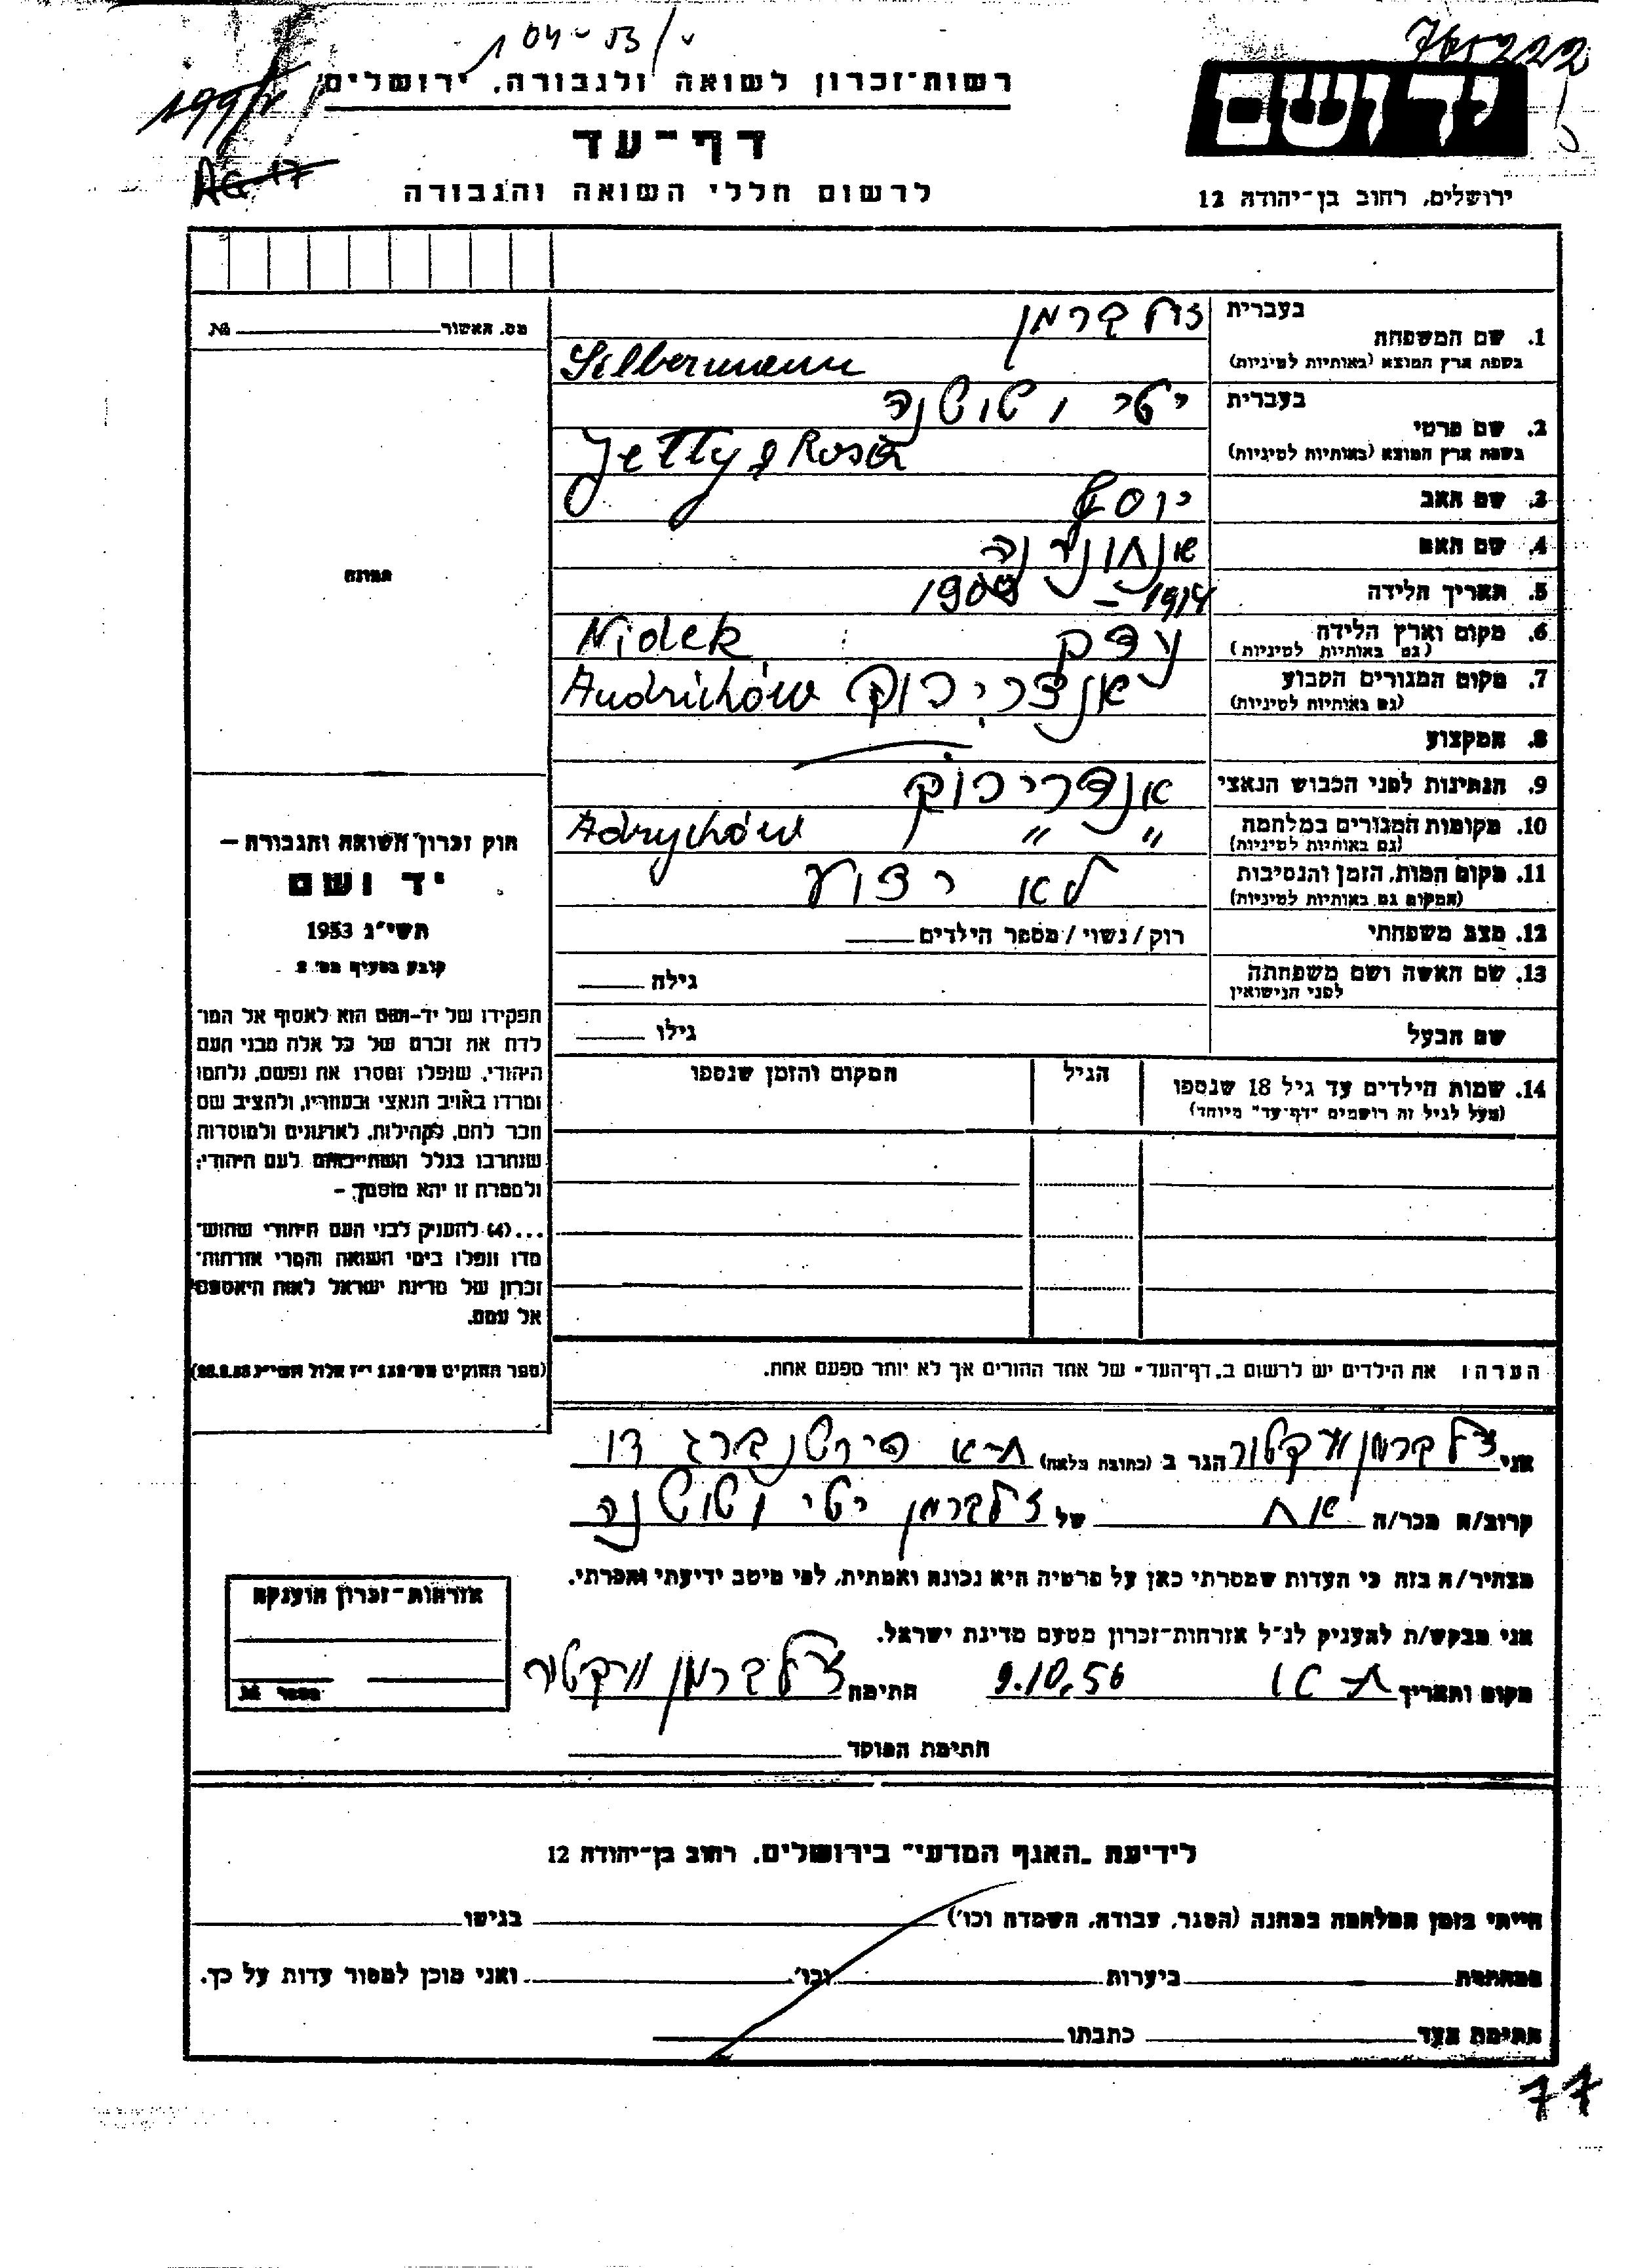 104-53/
765222
רשות־זכרון לשואה ולגבורה, ירושלים
יד ושם
199/
דף־עד
AG-17
לרשום חללי השואה והגבורה
ירושלים, רחוב בן־יהודה 12
בעברית זילברמן
1. שם המשפחה
בשפת ארץ המוצא (באותיות לטיניות) Silbermann
מס. האשור №
בעברית יטי ושושנה
2. שם פרטי
בשפת ארץ המוצא (באותיות לטיניות) Jetty & Rosa
3. שם האב יוסף
4. שם האם
תמונה
5. תאריך הלידה 1914 –
6. מקום וארץ הלידה Nidek
(גם באותיות לטיניות)
7. מקום המגורים הקבוע אנדריכוק Andrichów
(גם באותיות לטיניות)
8. המקצוע
9. הנתינות לפני הכבוש הנאצי אנדריכוק
10. מקומות המגורים במלחמה " " Adrychów
(גם באותיות לטיניות)
11. מקום המות, הזמן והנסיבות לא ידוע
(המקום גם באותיות לטיניות)
12. מצב משפחתי רוק/נשוי/מספר הילדים
13. שם האשה ושם משפחתה גילה
לפני הנישואין
שם הבעל גילו
חוק זכרון השואה והגבורה –
יד ושם
תשי"ג 1953
קובע בסעיף מס' 2
תפקידו של יד-ושם הוא לאסוף אל המו־
לדת את זכרם של כל אלה מבני העם
היהודי, שנפלו ומסרו את נפשם, נלחמו
ומרדו באויב הנאצי ובעוזריו, ולהציב שם
וזכר להם, לקהילות, לארגונים ולמוסדות
שנחרבו בגלל השתייכותם לעם היהודי;
ולמטרה זו יהא מוסמך –
...(4) להעניק לבני העם היהודי שהוש־
מדו ונפלו בימי השואה והמרי אזרחות־
זכרון של מדינת ישראל לאות היאספם
אל עמם.
(ספר החוקים מס' 132 י"ז אלול תשי"ג 28.8.53)
14. שמות הילדים עד גיל 18 שנספו הגיל המקום והזמן שנספו
(מעל לגיל זה רושמים "דף־עד" מיוחד)
הערה: את הילדים יש לרשום ב"דף־העד" של אחד ההורים אך לא יותר מפעם אחת.
אני צילברמן ויקטור הגר ב (כתובת מלאה) ת-א
קרוב/ה מכר/ה אח של זילברמן יטי ושושנה
מצהיר/ה בזה כי העדות שמסרתי כאן על פרטיה היא נכונה ואמתית, לפי מיטב ידיעתי והכרתי.
אני מבקש/ת להעניק לנ"ל אזרחות־זכרון מטעם מדינת ישראל.
מקום ותאריך 9.10.56 חתימה צילברמן ויקטור
אזרחות־זכרון הוענקה
מספר №
חתימת המוסד
לידיעת "האגף המדעי" בירושלים, רחוב בן־יהודה 12
הייתי בזמן המלחמה במחנה (הסגר, עבודה, השמדה וכו') בגיטו
במחתרת ביערות וכו' ואני מוכן למסור עדות על כך.
חתימת העד כתבתו
77